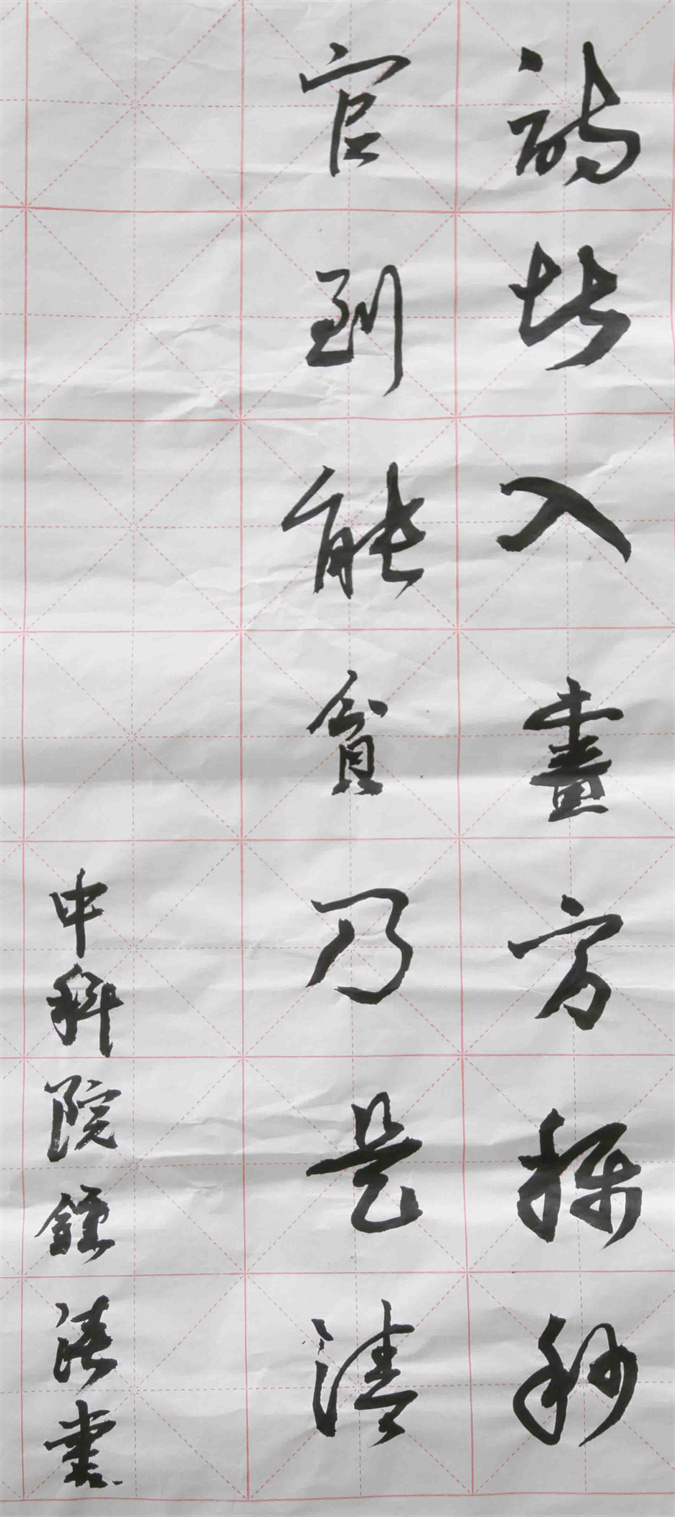 詩堪入畫方稱妙
官到能貧乃是清
中科院鍾書